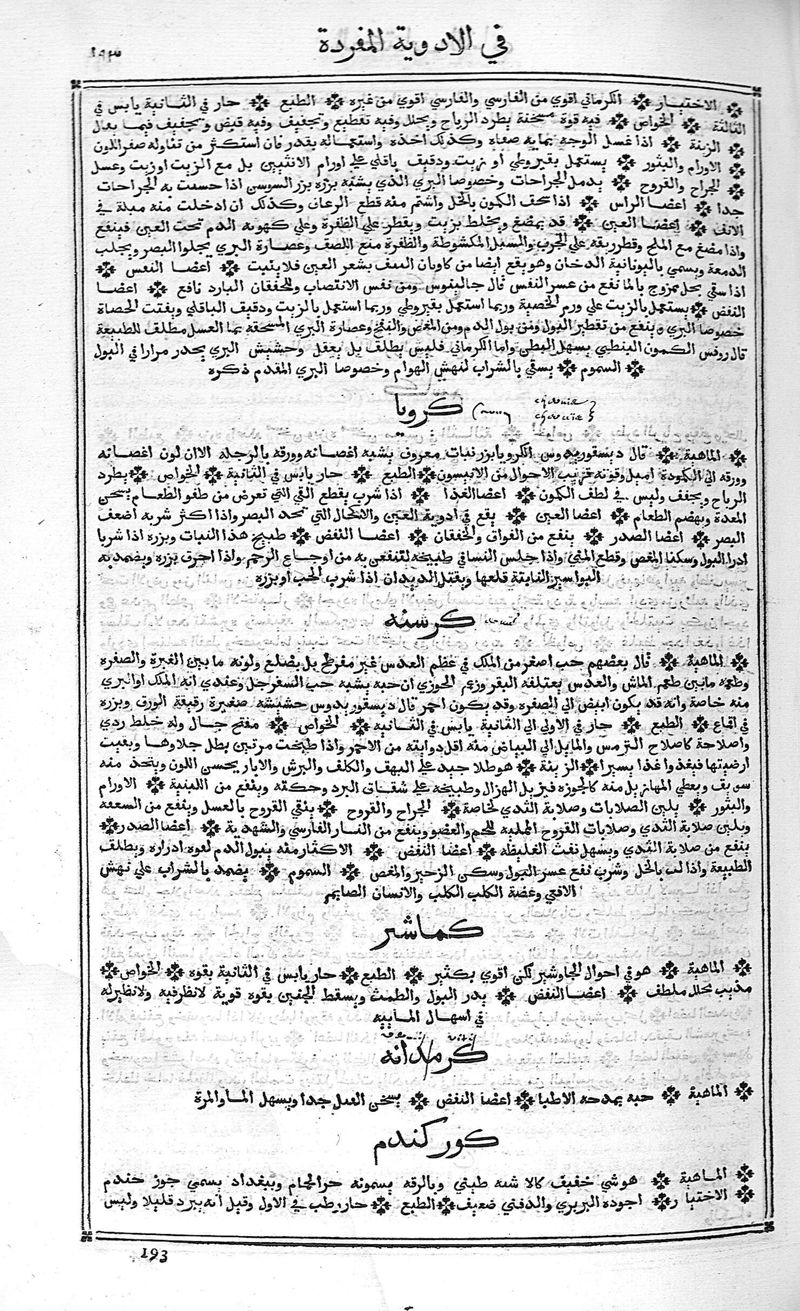 في الادوية المفردة
١٩٣
الاختيار ❊ الكرماني اقوي من الفارسي والفارسي اقوي من غيره ❊ الطبع ❊ حار في الثانية يابس في
الثالثة ❊ الخواص ❊ فيه قوة مسخنة يطرد الرياح ويحلل وفيه تقطيع وتجفيف وفيه قبض وتجفيف فيما يقال
❊ الزينة ❊ اذا غسل الوجه بمايه صفاه وكذلك اخذه واستعماله بقدر فان استكثر من تناوله صفر اللون
❊ الاورام والبثور ❊ يستعمل بقيروطي او زيت ودقيق باقلي علي اورام الانثيين بل مع الزيت او زيت وعسل
❊ الجراح والقروح ❊ يدمل الجراحات وخصوصا البري الذي يشبه بزره بزر السوسن اذا حسيت به الجراحات
جدا ❊ اعضا الراس ❊ اذا سحق الكمون بالخل واشتم منه قطع الرعاف وكذلك ان ادخلت منه فتيلة في
الانف ❊ اعضا العين ❊ قد يمضغ ويخلط بزيت ويقطر علي الظفرة وعلي كهوبه الدم تحت العين فينفع
واذا مضغ مع الملح وقطر ريقه علي الجرب والسبل المكشوطة والظفرة منع اللصق وعصارة البري يجلوا البصر ويجلب
الدمعة ويسمي باليونانية الدخان وهو يقع ايضا من كاويات النتف بشعر العين فلا ينبت ❊ اعضا النفس ❊
اذا سقي بخل ممزوج بالما نفع من عسر النفس قال جالينوس ومن نفس الانتصاب والخفقان البارد نافع ❊ اعضا
النفض ❊ يستعمل بالزيت علي ورم الخصية وربما استعمل بقيروطي وربما استعمل بالزيت ودقيق الباقلي ويفتت الحصاة
خصوصا البري ❊ ينفع من تقطير البول ومن بول الدم ومن المغص والنفخ وعصارة البري المسحقه بما العسل مطلق للطبيعة
قال روفس الكمون النبطي يسهل البطن واما الكرماني فليس يطلق بل يعقل وحشيش البري يحدر مرارا في البول
❊ السموم ❊ يسقي بالشراب لنهش الهوام وخصوصا البري المقدم ذكره
كرويا
❊ الماهية ❊ قال ديسقوريدوس الكرويا بزر نبات معروف يشبه اغصانه وورقه بالرجلة الا ان لون اغصانه
وورقه الي الكمودة اميل وقوته قريب الاحوال من الانيسون ❊ الطبع ❊ حار يابس في الثانية ❊ الخواص ❊ يطرد
الرياح ويجفف وليس في لطف الكمون ❊ اعضا الغذا ❊ اذا شرب يقطع القي التي تعرض من طفو الطعام يسخن
المعدة ويهضم الطعام ❊ اعضا العين ❊ يقع في ادوية العين والاكحال التي تحد البصر واذا اكثر شربه اضعف
البصر ❊ اعضا الصدر ❊ ينفع من الفواق والخفقان ❊ اعضا النفض ❊ طبيخ هذا النبات وبزره اذا شربا
ادرا البول وسكنا المغص وقطع المني واذا جلس النسا في طبيخه لتنفعن به من اوجاع الرحم واذا احرق بزره ويضمد به
البواسير النابتة قلعها ويقتل الديدان اذا شرب الحب او بزره
كرسنه
❊ الماهية ❊ قال بعضهم حب اصغر من الملك في عظم العدس غير مفرطح بل يضلع ولونه ما بين الغبرة والصفره
وطعمه ما بين طعم الماش والعدس يعتلفه البقر وزعم الخوزي ان حبه يشبه حب السفرجل وعندي انه الملك او البري
منه خاصة وانه قد يكون ابيض الي الصفره وقد يكون احمر قال ديسقوريدوس حشيشه صغيرة رقيقة الورق وبزره
في اقماع ❊ الطبع ❊ حار في الاولي الي الثانية يابس في الثانيه ❊ الخواص ❊ مفتح جال وله خلط ردي
واصلاحه كاصلاح الترمس والمايل الي البياض منه اقل دوايته من الاحمر واذا طبخت مرتين بطل جلاوها وبقيت
ارضيتها فيغذوا غذا يسيرا ❊ الزينة ❊ هو طلا جيد علي البهق والكلف والبرش والاثار يحسن اللون ويتخذ منه
سويق ويعطي المهازيل منه كالجوزه فيزيل الهزال وطبيخه علي شقاق البرد وحكته وينفع من اللبنية ❊ الاورام
والبثور ❊ يلين الصلابات وصلابة الثدي لخاصة ❊ الجراح والقروح ❊ ينقي القروح بالعسل وينفع من السعفه
ويلين صلابة الثدي وصلابات القروح الصلبه للحم والعضو وينفع من النار الفارسي والشهدية ❊ اعضا الصدر ❊
ينفع من صلابة الثدي ويسهل نفث الغليظه ❊ اعضا النفض ❊ الاكثار منه يبول الدم لقوه ادراره ويطلق
الطبيعة واذا لت بالخل وشرب نفع عسر البول وسكن الزحير والمغص ❊ السموم ❊ يضمد بالشراب علي نهش
الافعي وعضة الكلب الكلب والانسان الصايم
كماشير
❊ الماهية ❊ هو في احوال الجاوشير لكن اقوي بكثير ❊ الطبع ❊ حار يابس في الثانية بقوه ❊ الخواص ❊
مذيب محلل ملطف ❊ اعضا النفض ❊ يدر البول والطمث ويسقط الجنين بقوه قوية لا نظرفيه ولا نظيرله
في اسهال المايية
كرمدانه
❊ الماهية ❊ حبه يمدحه الاطبا ❊ اعضا النفض ❊ يسخن العبل جدا ويسهل الما والمرة
كوركندم
❊ الماهية ❊ هو شي خفيف كالاشنه طيني وبالرقه يسمونه خرا الحمام وببغداد يسمي جوز خندم
❊ الاختيار ❊ اجوده البربري والدفتي ضعيف ❊ الطبع ❊ حار رطب في الاول وقيل انه يبرد قليلا وليس
193